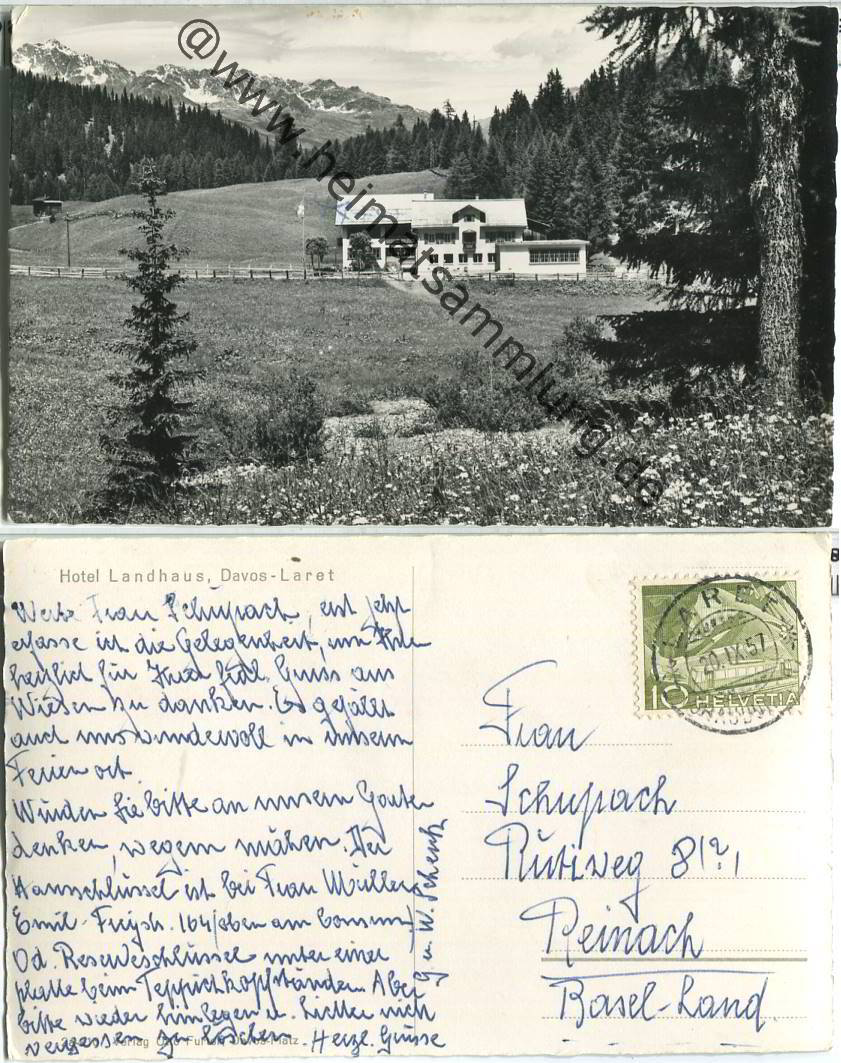 @www.heimatsammlung.de
Hotel Landhaus, Davos-Laret
Werte Frau Schupach, erst jetzt
erfasse ich die Gelegenheit, um Ihnen
herzlich für Ihren frdl. Gruss aus
Wiesen zu danken. Es gefällt
auch uns wundervoll in unserm
Ferienort.
Würden Sie bitte an unsern Garten
denken, wegem mähen. Der
Hausschlüssel ist bei Frau Müller,
Emil-Freystr. 164 (oben am Consum)
Od. Reserveschlüssel unter einer
Platte beim Teppichkopfständer. Aber
bitte wieder hinlegen u. Lichter nicht
vergessen zu löschen. Herzl. Grüsse
G. u. W. Schenk
Verlag Furter, Davos-Platz
LARET
IX.57
10 HELVETIA
Frau
Schupach
Rütiweg 8(?)
Reinach
Basel-Land.